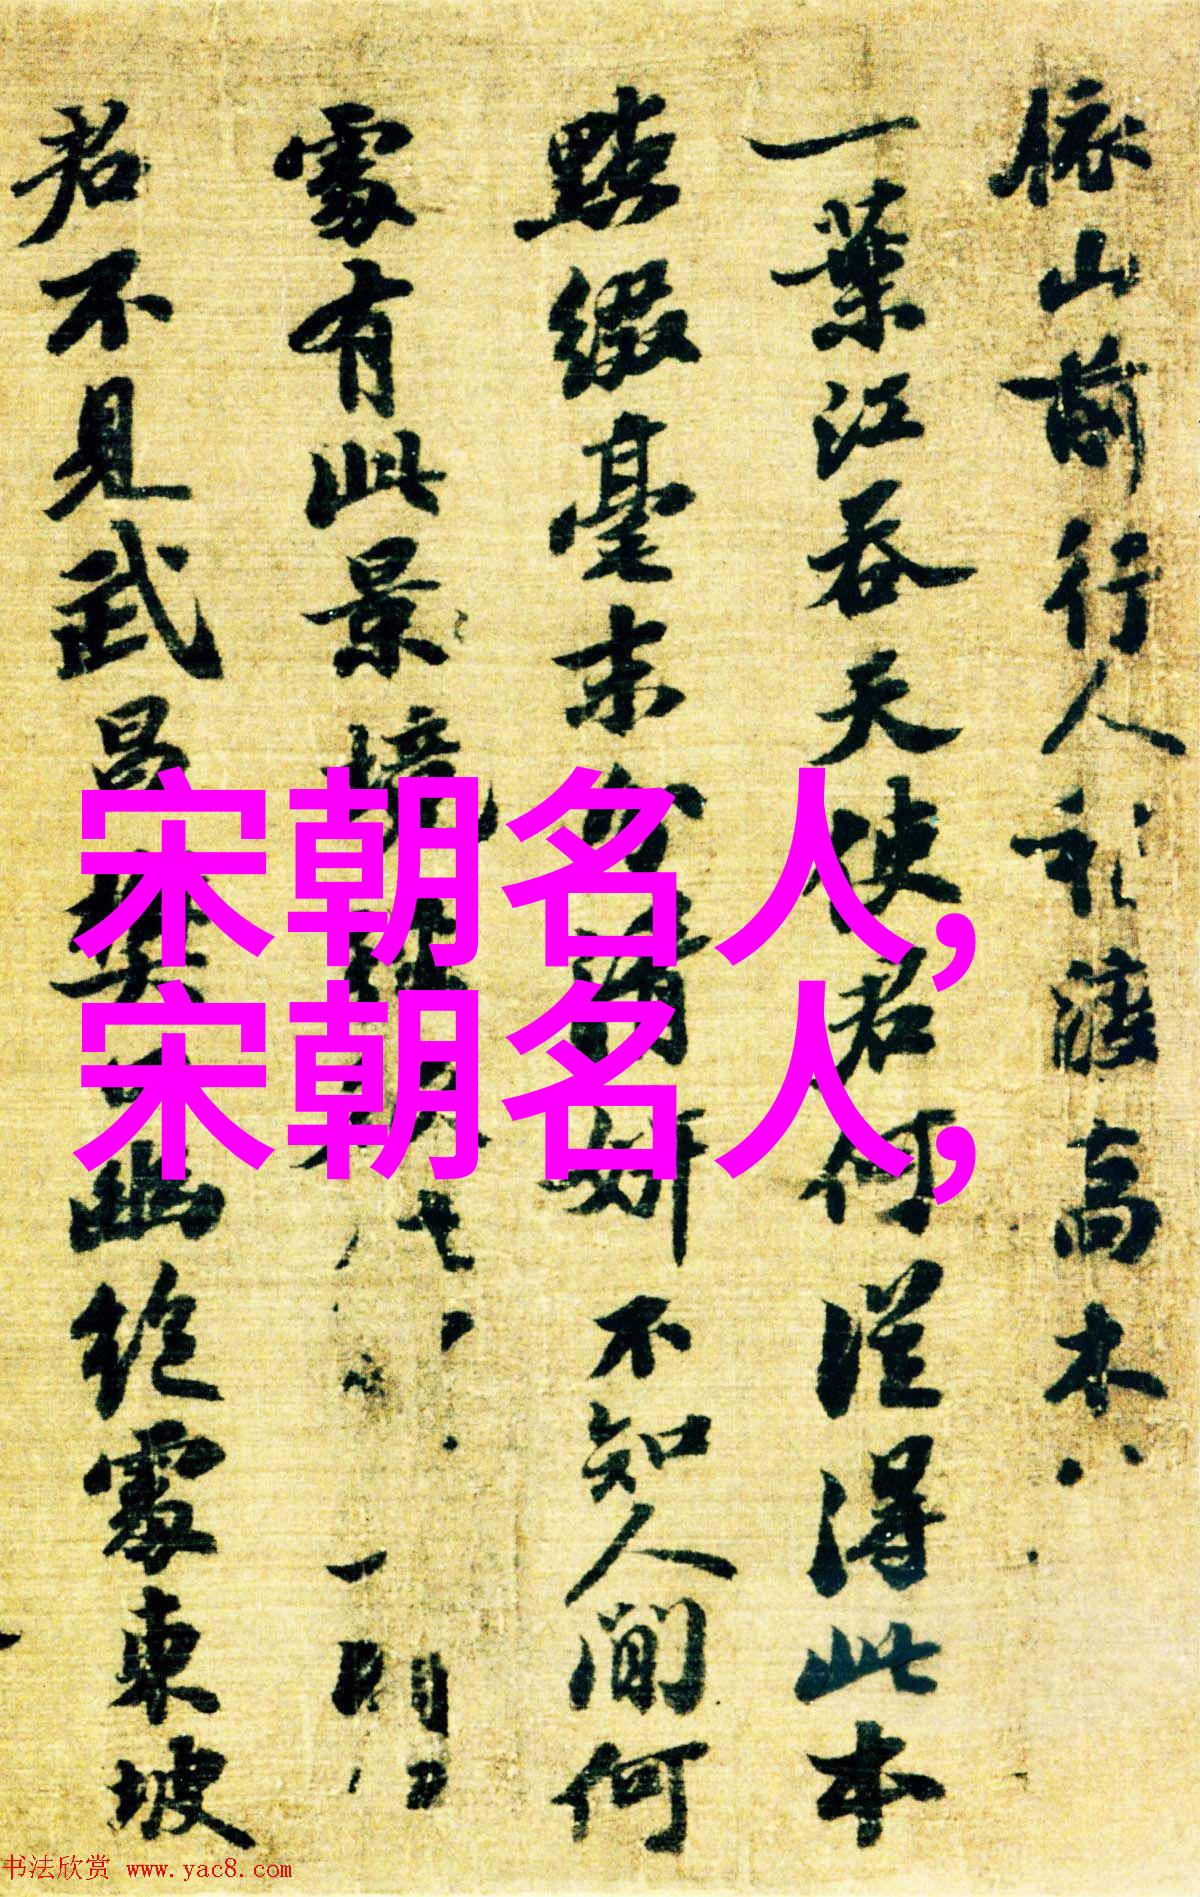 依山前行人稍渡高木
一葉江吞天使君何從得此本
點綴毫末分清妍不知人間何
處有此景境
君不見武昌樊口幽絕處東坡
宋朝名人,
宋朝名人,
书法欣赏 www.yac8.com